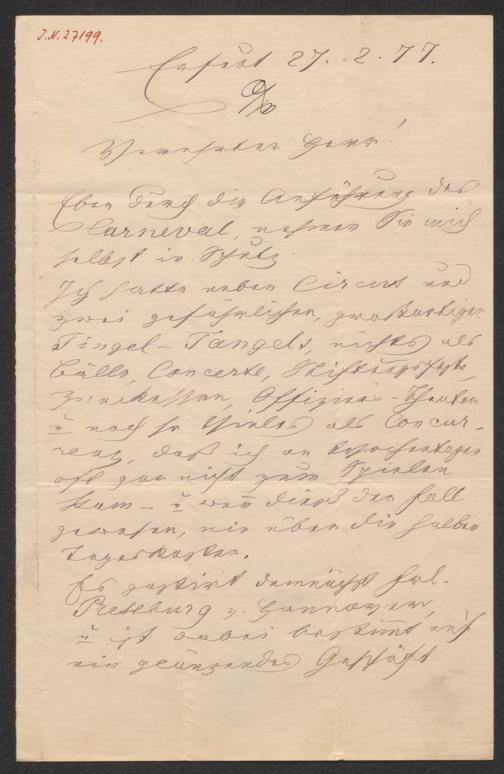 J.N. 27199.
Erfurt 27. 2. 77.
Verehrter Herr!
Eben durch die Anführung des
Carneval, nehmen Sie mich
selbst in Schutz.
Ich hatte neben Circus und
zwei gefährlichen, großartigen
Tingel-Tangels, nichts als
Bälle, Concerte, Stiftungsfeste,
Offiziers-Theater
u noch so Vieles als Concur-
renz, daß ich an Wochentagen
oft gar nicht zum Spielen
kam - u wenn dieß der Fall
gewesen, nie über die halben
Tageskosten.
Es gastirt demnächst Frl.
Pressburg v. Hannover,
u ist dabei bestimmt auf
ein glänzendes Geschäft